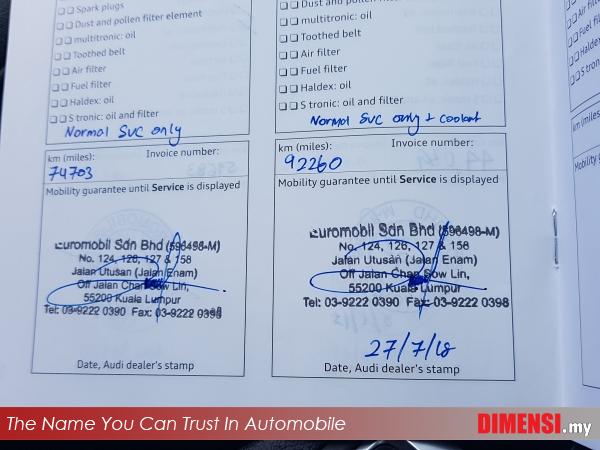 Spark plugs
Dust and pollen filter element
multitronic: oil
Toothed belt
Air filter
Fuel filter
Haldex: oil
S tronic: oil and filter
Normal SVC only
km (miles):
Invoice number:
74703
Mobility guarantee until Service is displayed
Euromobil Sdn Bhd (596498-M)
No. 124, 126, 127 & 158
Jalan Utusan (Jalan Enam)
Off Jalan Chan Sow Lin,
55200 Kuala Lumpur
Tel: 03-9222 0390 Fax: 03-9222 0398
Date, Audi dealer's stamp
Dust and pollen filter element
multitronic: oil
Toothed belt
Air filter
Fuel filter
Haldex: oil
S tronic: oil and filter
Normal SVC only + coolant
km (miles):
Invoice number:
92260
Mobility guarantee until Service is displayed
Euromobil Sdn Bhd (596498-M)
No. 124, 126, 127 & 158
Jalan Utusan (Jalan Enam)
Off Jalan Chan Sow Lin,
55200 Kuala Lumpur
Tel: 03-9222 0390 Fax: 03-9222 0398
27/7/18
Date, Audi dealer's stamp
The Name You Can Trust In Automobile
DIMENSI.my